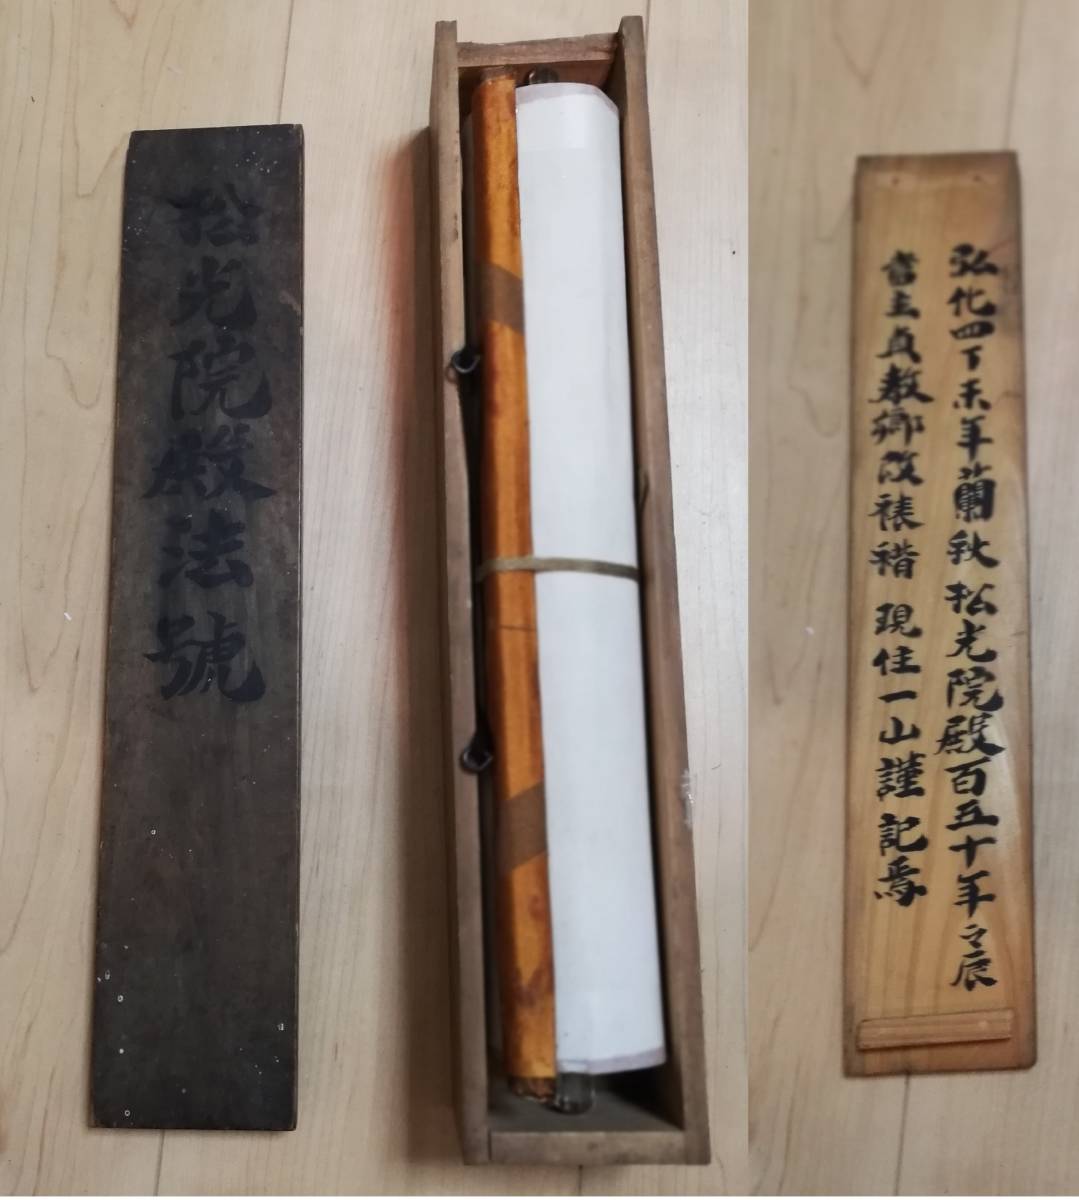 松光院殿法號
弘化四丁未年蘭秋松光院殿百五十年之辰
當主貞教卿改裱褙 現住一山謹記焉